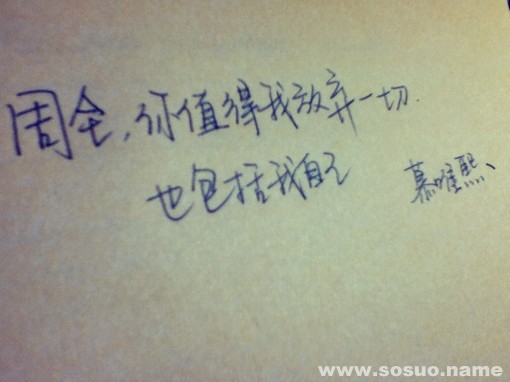 周全，你值得我放弃一切.
也包括我自己
慕唯熙、
www.sosuo.name